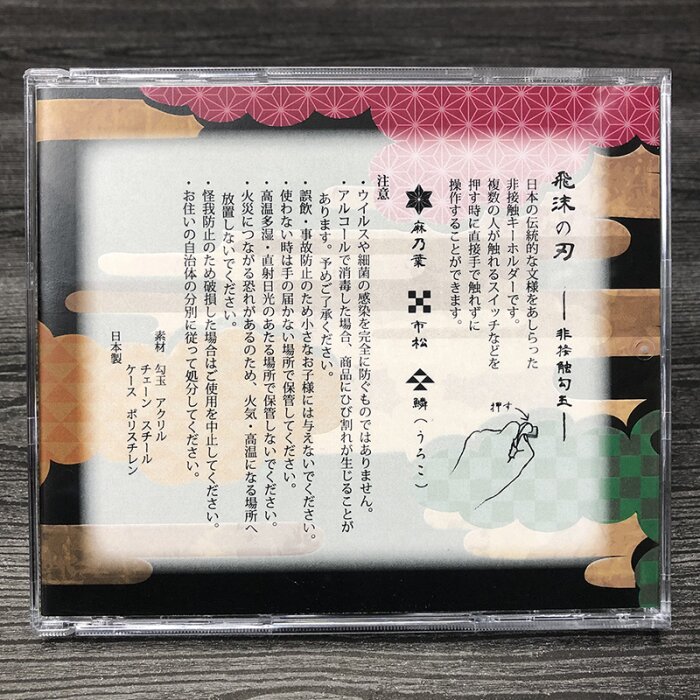 飛沫の刃 ―非接触勾玉―
日本の伝統的な文様をあしらった
非接触キーホルダーです。
複数の人が触れるスイッチなどを
押す時に直接手で触れずに
操作することができます。
押す
麻乃葉 市松 鱗(うろこ)
注意
・ウイルスや細菌の感染を完全に防ぐものではありません。
・アルコールで消毒した場合、商品にひび割れが生じることが
あります。予めご了承ください。
・誤飲・事故防止のため小さなお子様には与えないでください。
・使わない時は手の届かない場所で保管してください。
・高温多湿・直射日光のあたる場所で保管しないでください。
・火災につながる恐れがあるのため、火気・高温になる場所へ
放置しないでください。
・怪我防止のため破損した場合はご使用を中止してください。
・お住いの自治体の分別に従って処分してください。
素材 勾玉 アクリル
チェーン スチール
ケース ポリスチレン
日本製